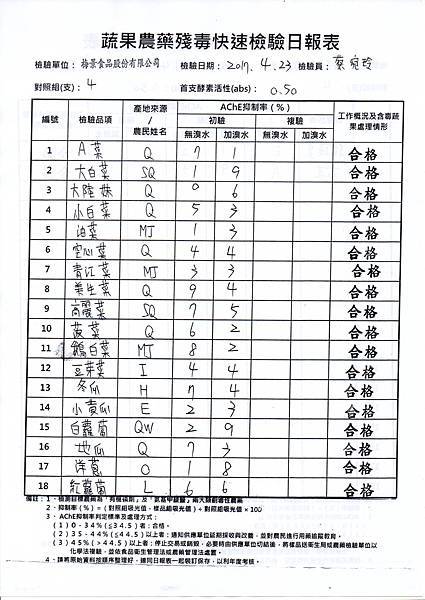 蔬果農藥殘毒快速檢驗日報表
檢驗單位: 梅景食品股份有限公司 檢驗日期: 2017.4.23 檢驗員: 蔡宛玲
對照組(支): 4 首支酵素活性(abs): 0.50
編號 檢驗品項 產地來源/農民姓名 AChE抑制率(%) 工作概況及含毒蔬果處理情形
初驗 複驗
無溴水 加溴水 無溴水 加溴水
1 A菜 Q 7 1 合格
2 大白菜 SQ 1 9 合格
3 大陸妹 Q 0 6 合格
4 小白菜 Q 5 3 合格
5 油菜 MJ 1 3 合格
6 空心菜 Q 4 4 合格
7 青江菜 MJ 3 3 合格
8 美生菜 Q 9 4 合格
9 高麗菜 SQ 7 5 合格
10 菠菜 Q 6 2 合格
11 鵝白菜 MJ 8 2 合格
12 豆芽菜 I 4 4 合格
13 冬瓜 H 7 4 合格
14 小黃瓜 E 2 3 合格
15 白蘿蔔 QW 2 9 合格
16 地瓜 Q 7 3 合格
17 洋蔥 O 1 8 合格
18 紅蘿蔔 L 6 6 合格
備註: 1、檢測目標農藥為「有機磷劑」及「氨基甲酸鹽」兩大類劇毒性農藥
2、抑制率(%)=(對照組吸光值-樣品組吸光值)÷對照組吸光值×100
3、AChE抑制率判定標準及處理方式:
(1)0-34%(≦34.5)者:合格。
(2)35-44%(≦44.5)以上者:通知供應單位延期採收與改善,並對農民進行用藥追蹤教育。
(3)45%(>44.5)以上者:停止交易或銷毀,必要時由供應單位切結後,將樣品送衛生局或農藥檢驗單位以
化學法複驗,並依食品衛生管理法或農藥管理法處置。
4、請將原始資料按順序整理好,連同日報表一起裝訂保存,以利年度考核。